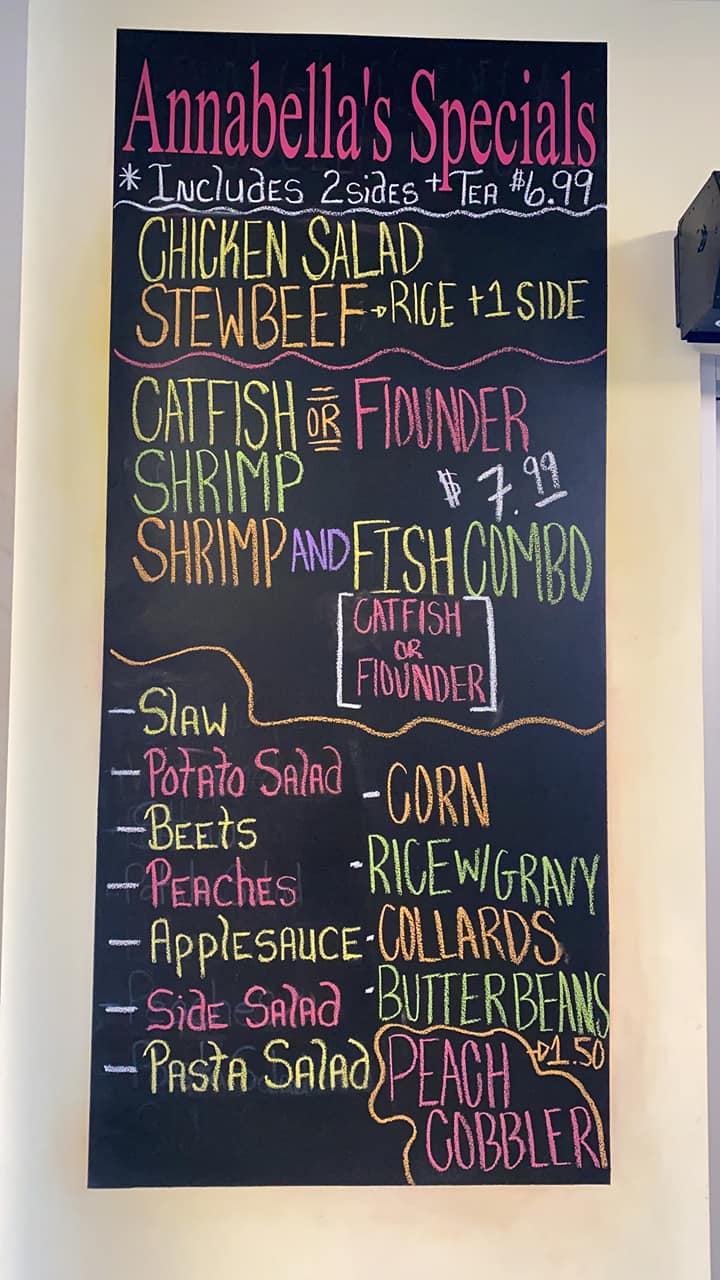 Annabella's Specials
* Includes 2 sides + Tea $6.99
CHICKEN SALAD
STEWBEEF → RICE + 1 SIDE
CATFISH OR FLOUNDER
SHRIMP
$7.99
SHRIMP AND FISH COMBO
[CATFISH
OR
FLOUNDER]
- Slaw
- Potato Salad
- Beets
- Peaches
- Applesauce
- Side Salad
- Pasta Salad
- CORN
- RICE W/ GRAVY
- COLLARDS
- BUTTERBEANS
PEACH → 1.50
COBBLER